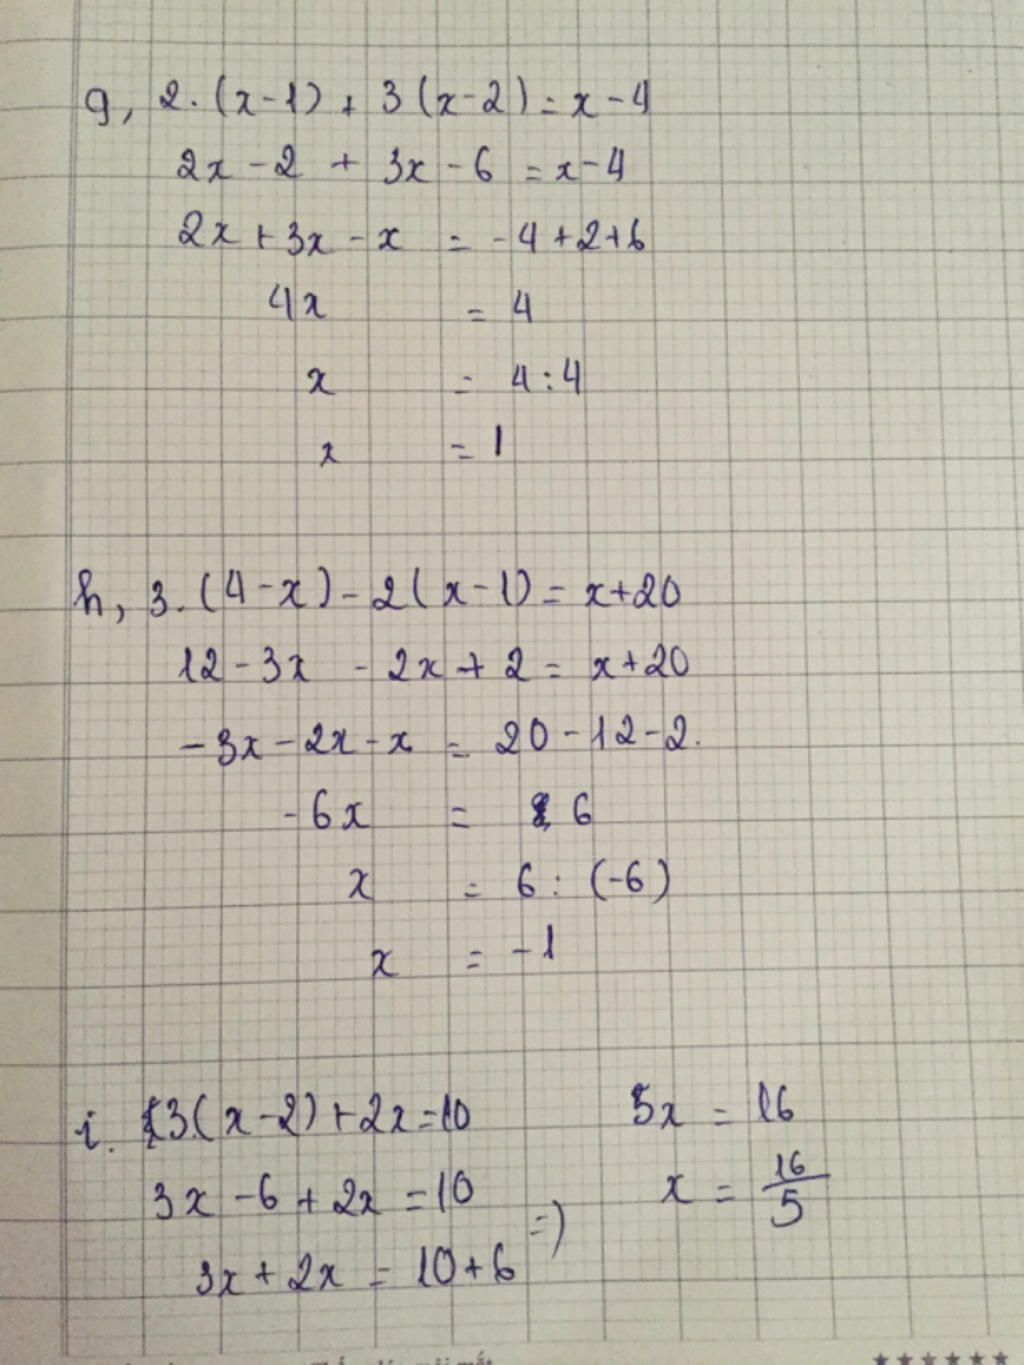 g, 2.(x-1) + 3(x-2) = x-4
2x - 2 + 3x - 6 = x-4
2x + 3x - x = -4+2+6
4x = 4
x = 4:4
x = 1
h, 3.(4-x) - 2(x-1) = x+20
12 - 3x - 2x + 2 = x+20
-3x - 2x - x = 20-12-2.
-6x = 6
x = 6: (-6)
x = -1
i. 3(x-2)+2x=10
3x - 6 + 2x = 10
3x + 2x = 10+6
=)
5x = 16
x = 16/5